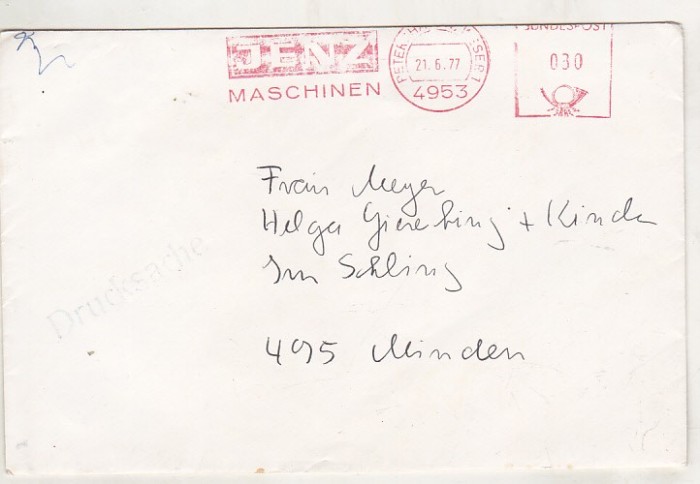 JENZ
MASCHINEN
PETERSHAGEN, WESER 1
21.6.77
4953
BUNDESPOST
030
Frau Meyer
Helga Gieseking + Kinder
Im Schling
495 Minden
Drucksache